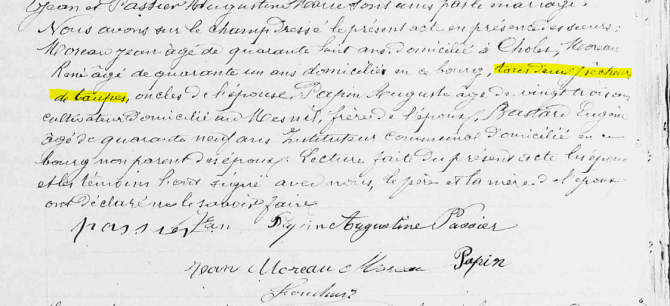 Jean et Passier Augustine Marie sont unis par le mariage.
Nous avons sur le champ dressé le présent acte en présence des sieurs:
Moreau Jean âgé de quarante huit ans, domicilié à Cholet, Moreau
René âgé de quarante un ans domicilié en ce bourg, tous deux pêcheurs
de taupes, oncles de l'épouse, Papin Auguste âgé de vingt trois ans
cultivateur domicilié au Mesnil, frère de l'époux, Eugène
âgé de quarante neuf ans Instituteur communal domicilié en ce
bourg non parent des époux. Lecture faite du présent acte les époux
et les témoins l'ont signé avec nous, le père et la mère de l'époux
ont déclaré ne le savoir faire
Augustine Passier
Jean Moreau Moreau Papin